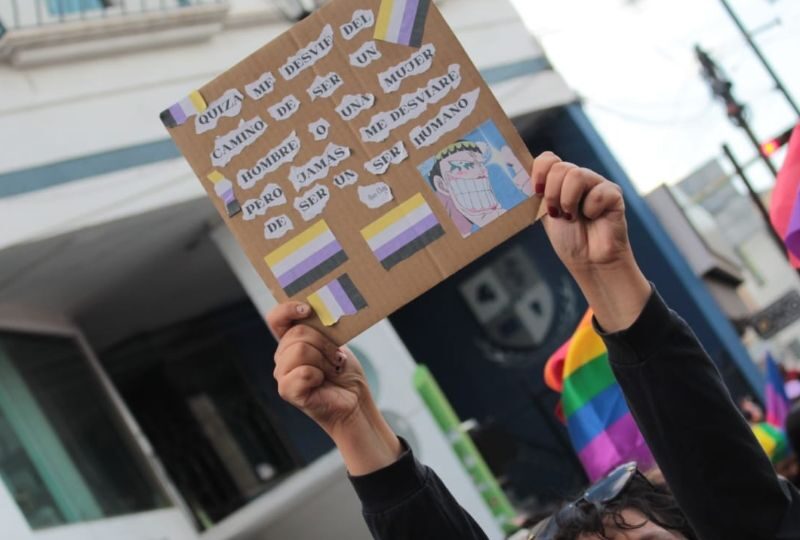 QUIZÁ ME DESVIÉ DEL
CAMINO DE SER UN
HOMBRE O UNA MUJER
PERO JAMÁS ME DESVIARÉ
DE SER UN SER HUMANO